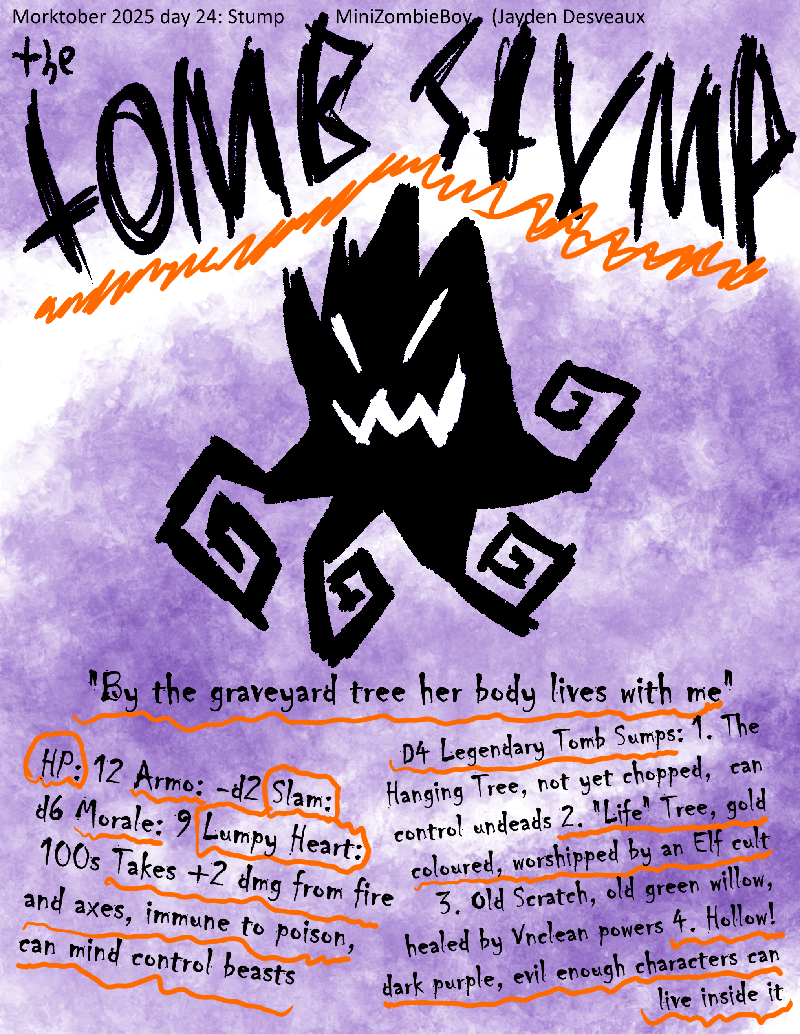 Morktober 2025 day 24: Stump MiniZombieBoy (Jayden Desveaux
the
tOMB StVMP
"By the graveyard tree her body lives with me"
HP: 12 Armo: -d2 Slam:
d6 Morale: 9 Lumpy Heart:
100s Takes +2 dmg from fire
and axes, immune to poison,
can mind control beasts
D4 Legendary Tomb Sumps: 1. The
Hanging Tree, not yet chopped, can
control undeads 2. "Life" Tree, gold
coloured, worshipped by an Elf cult
3. Old Scratch, old green willow,
healed by Vnclean powers 4. Hollow!
dark purple, evil enough characters can
live inside it